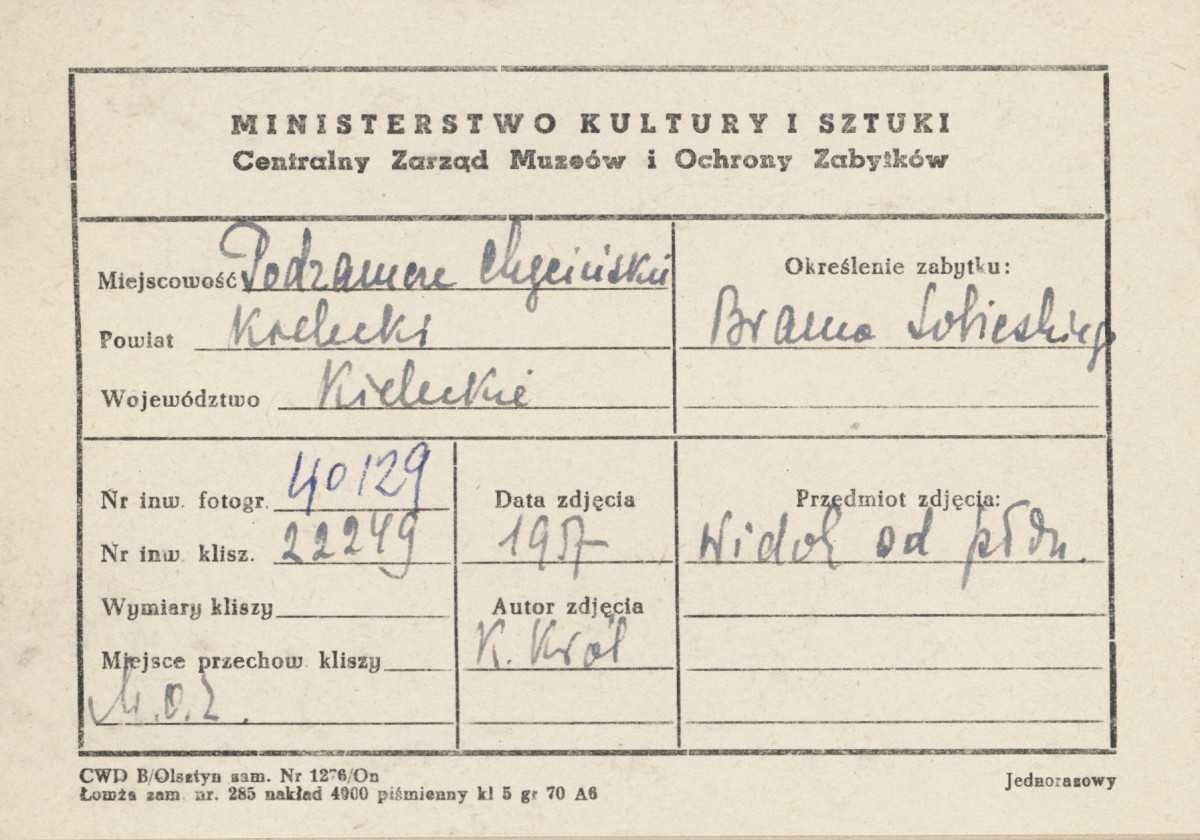 MINISTERSTWO KULTURY I SZTUKI
Centralny Zarząd Muzeów i Ochrony Zabytków
Miejscowość Podzamcze Chęcińskie
Powiat Kielecki
Województwo Kieleckie
Określenie zabytku:
Brama Sobieskiego
Nr inw. fotogr. 40129
Nr inw. klisz. 22249
Wymiary kliszy
Miejsce przechow. kliszy
Data zdjęcia
1957
Autor zdjęcia
K. Król
Przedmiot zdjęcia:
Widok od płdn.
CWD B/Olsztyn zam. Nr 1276/On
Łomża zam. nr. 285 nakład 4900 piśmienny kl 5 gr 70 A6
Jednorazowy